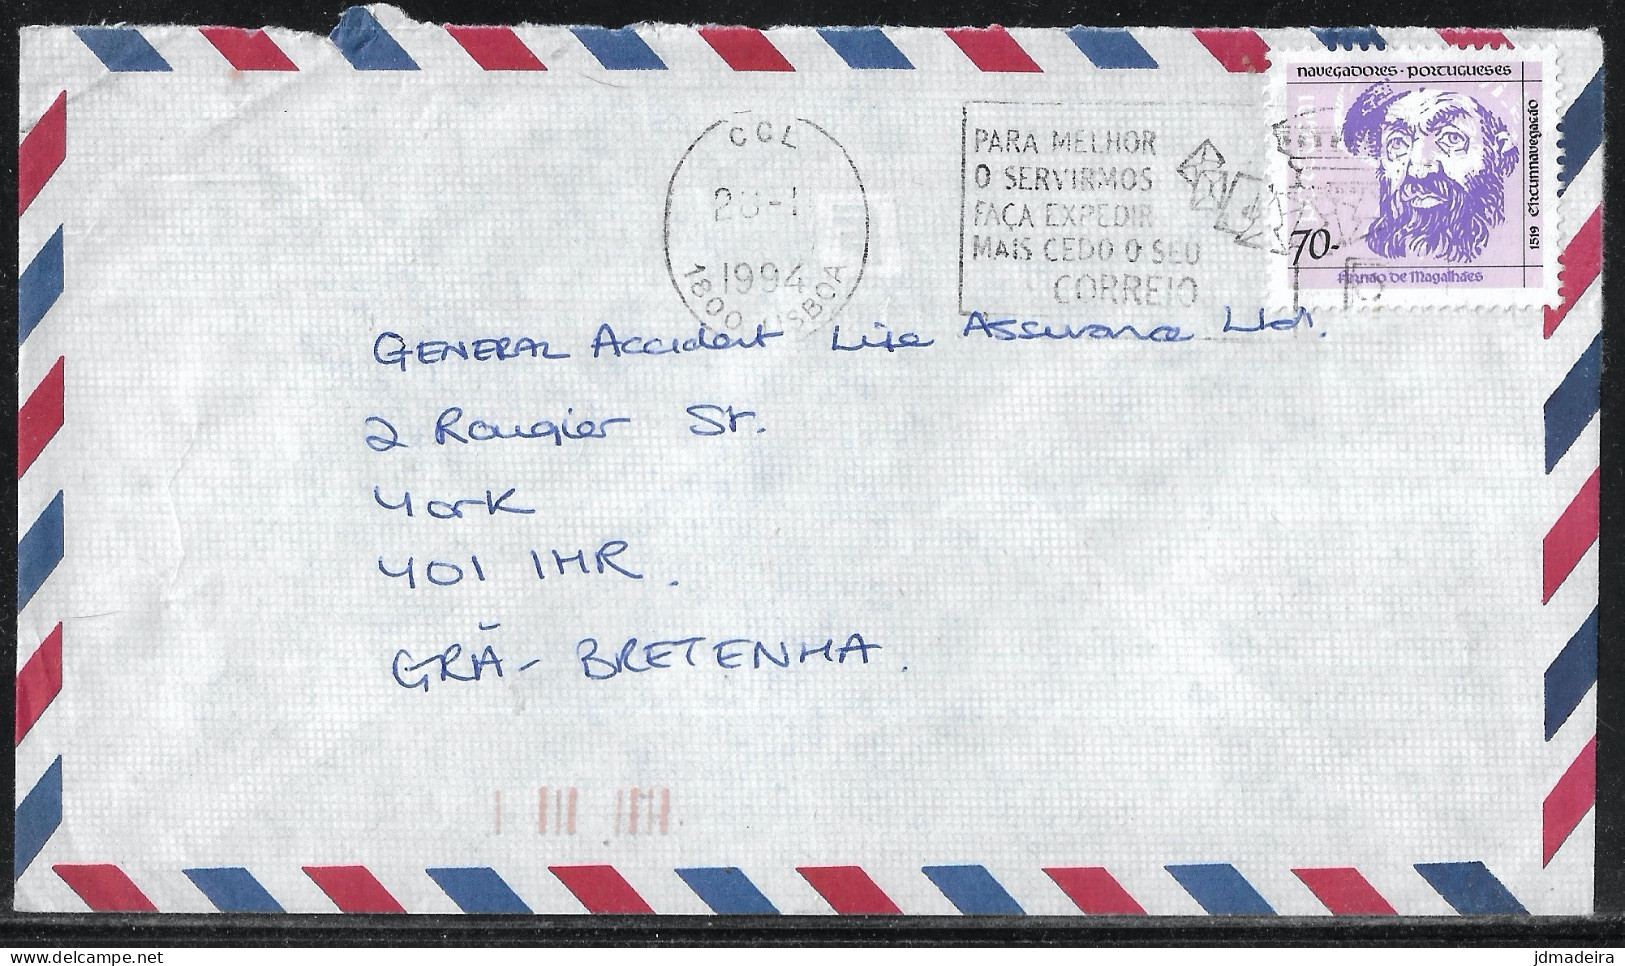 NAVEGADORES · PORTUGUESES
70-
1519 Circumnavegação
Fernão de Magalhães
CCL
1994
1800 LISBOA
PARA MELHOR
O SERVIRMOS
FAÇA EXPEDIR
MAIS CEDO O SEU
CORREIO
GENERAL Accident Life Assurance Ltd.
2 Rougier St.
York
YO1 1HR.
GRÃ-BRETENHA.
delcampe.net
jdmadeira